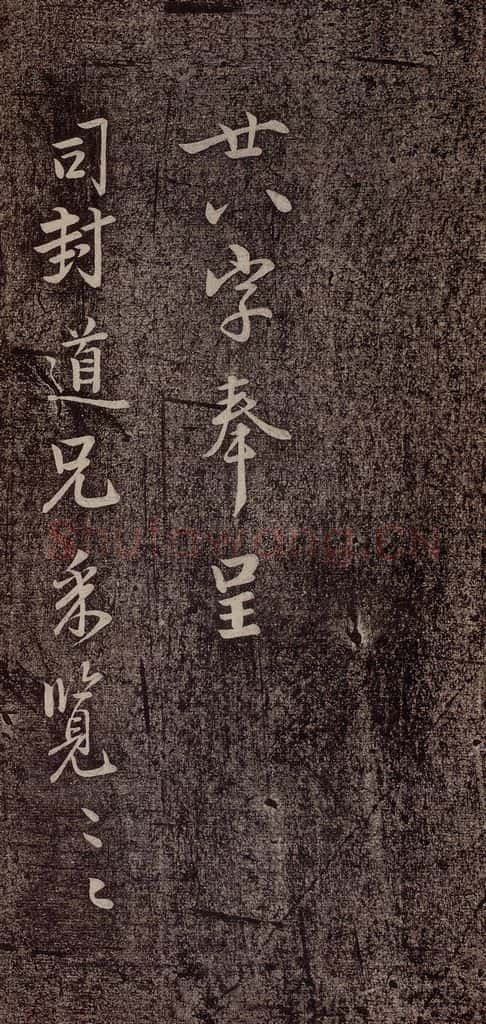 廿八字奉呈
司封道兄采覽〻〻
shufawang.cn